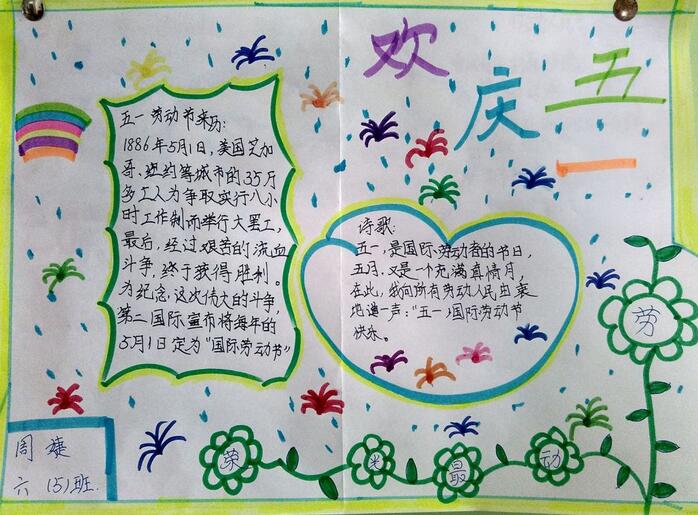 欢庆五一
五一劳动节来历:
1886年5月1日,美国芝加
哥、纽约等城市的35万
多工人为争取实行八小
时工作制而举行大罢工,
最后,经过艰苦的流血
斗争,终于获得胜利。
为纪念这次伟大的斗争,
第二国际宣布将每年的
5月1日定为“国际劳动节”
诗歌:
五一,是国际劳动者的节日,
五月,又是一个充满真情月,
在此,我向所有劳动人民由衷
地道一声:“五一”国际劳动节
快乐。
劳
动
最
光
荣
周婕
六(5)班.